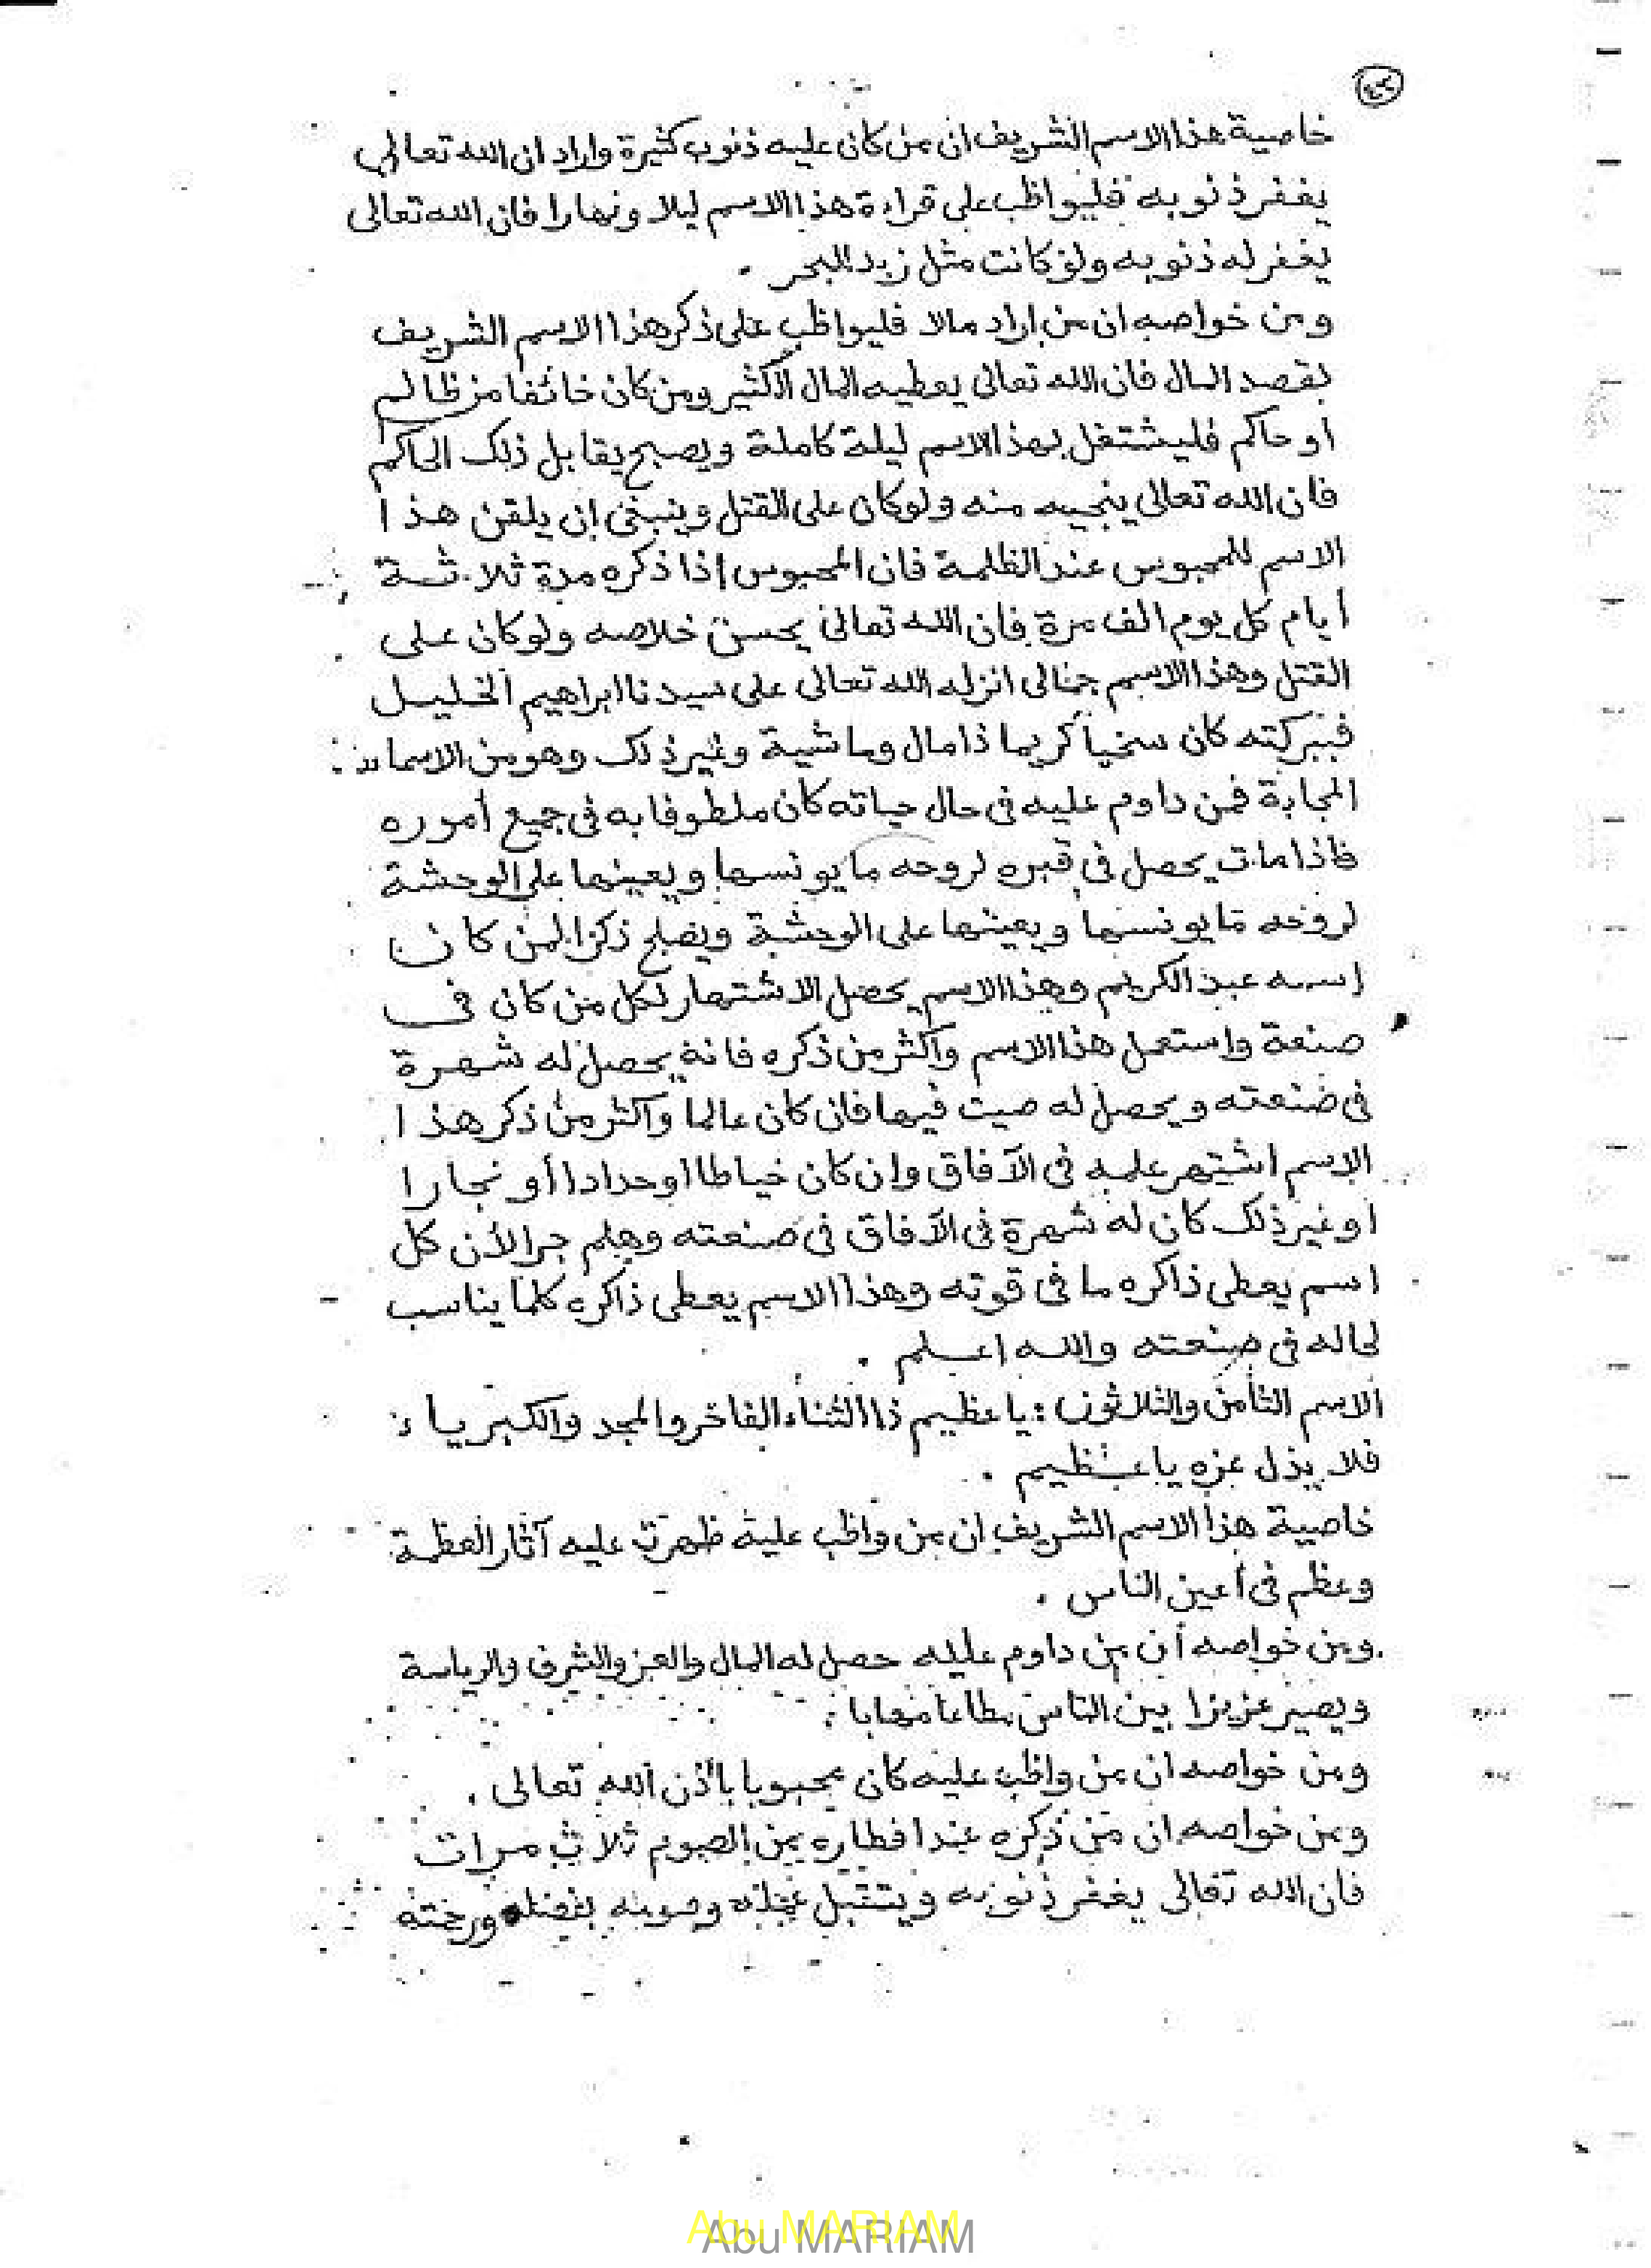 خاصية هذا الاسم الشريف ان من كان عليه ذنوب كثيرة واراد ان الله تعالى
يغفر ذنوبه فليواظب على قراءة هذا الاسم ليلا ونهارا فان الله تعالى
يغفر له ذنوبه ولو كانت مثل زبد البحر .
ومن خواصه ان من اراد مالا فليواظب على ذكر هذا الاسم الشريف
بقصد المال فان الله تعالى يعطيه المال الكثير ومن كان خائفا من ظالم
أو حاكم فليشتغل بهذا الاسم ليلة كاملة ويصبح يقابل ذلك الحاكم
فان الله تعالى ينجيه منه ولو كان على القتل وينبغى إن يلقن هذا
الاسم للمحبوس عند الظلمة فان المحبوس إذا ذكره مدة ثلاثة
أيام كل يوم الف مرة فان الله تعالى يحسن خلاصه ولو كان على
القتل وهذا الاسم جمالى انزله الله تعالى على سيدنا ابراهيم الخليل
فببركته كان سخيا كريما ذا مال وماشية وغير ذلك وهو من الاسماء
المجابة فمن داوم عليه فى حال حياته كان ملطوفا به فى جميع أموره
فاذا مات يحصل فى قبره لروحه ما يونسها ويعينها على الوحشة
لروحه ما يونسها ويعينها على الوحشة ويصلح ذكرا لمن كان
إسمه عبد الكريم وهذا الاسم يحصل الاشتهار لكل من كان فى
صنعة واستعمل هذا الاسم وأكثر من ذكره فانه يحصل له شهرة
فى صنعته ويحصل له صيت فيها فان كان عالما وأكثر من ذكر هذا
الاسم اشتهر علمه فى الآفاق وإن كان خياطا أو حدادا أو نجارا
أو غير ذلك كان له شهرة فى الآفاق فى صنعته وهلم جرا لأن كل
اسم يعطى ذاكره ما فى قوته وهذا الاسم يعطى ذاكره كلما يناسب
لحاله فى صنعته والله اعلم .
الاسم الثامن والثلاثون : يا عظيم ذا الثناء الفاخر والمجد والكبرياء
فلا يذل عزه يا عظيم .
خاصية هذا الاسم الشريف ان من واظب عليه ظهرت عليه آثار العظمة
وعظم فى أعين الناس .
ومن خواصه أن من داوم عليه حصل له المال والعز والشرف والرياسة
ويصير عزيزا بين الناس مطاعا مهابا .
ومن خواصه ان من واظب عليه كان محبوبا بأذن الله تعالى .
ومن خواصه ان من ذكره عند افطاره من الصوم ثلاث مرات
فان الله تعالى يغفر ذنوبه ويتقبل عمله وصومه بفضله ورحمته
Abu MARIAM